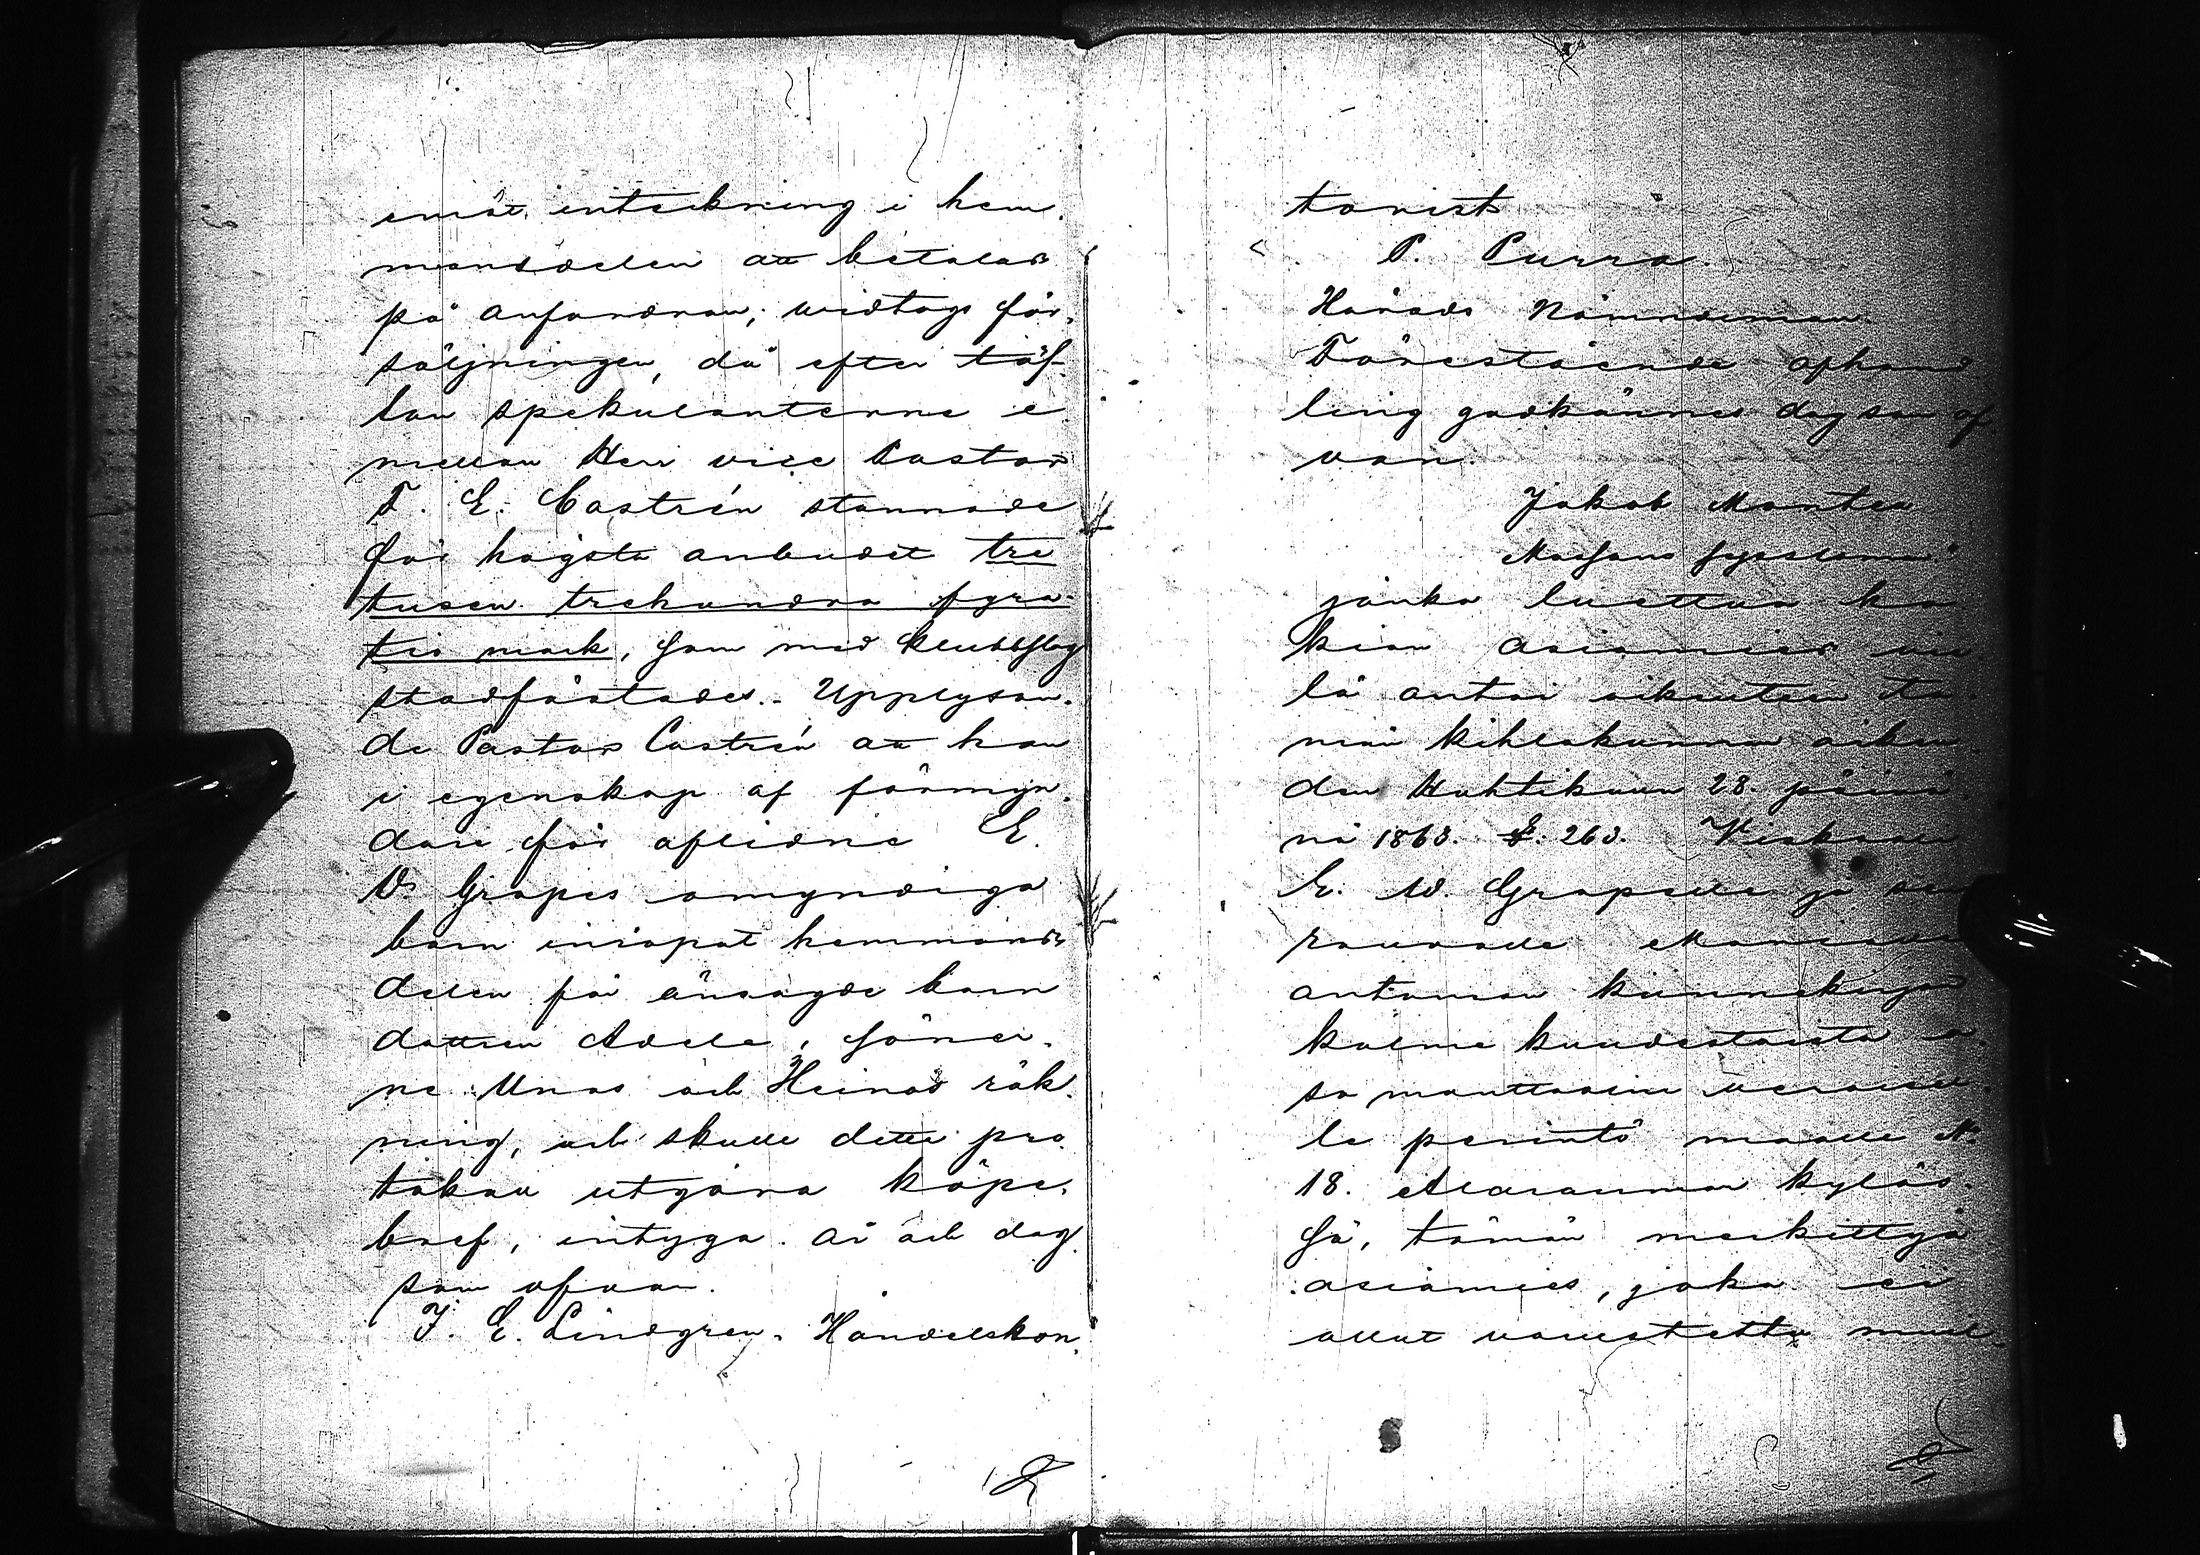 emot inteckning i hem-
mansdelen att betalas
på anfordran, widtogs för-
säljningen, då efter täf-
lan spekulanterne e
mellan Herr vice Pastor
F. E. Castrén stannade
för högsta anbudet tre
tusen trehundra fyra-
tio mark, som med klubbslag
stadfästades. Upplysan-
de Pastor Castrén att han
i egenskap af förmyn-
dare för aflidne E.
W. Grapes omyndiga
barn inropat hemmans-
delen för ansagde barn
dottren Adele, söner-
ne Unas och Heinas räk-
ning, och skulle dette pro
tokoll utgöra köpe-
bref, intyga. År och dag
som ofvan.
J. E. Lindgren. Handelskon-
torist
P. Purra
Härads Nämndeman.
Förestående afhand
ling godkännes dag som of
van.
Jakob Manten
jonka luettua ha
kian asiamies
lä antoi oikeuteen tä
män kihlakunnan oikeu-
den Huhtikuun 28. päivä
nä 1863. §. 263.
E. W. Grapelle ja
rouvalle
antaman kiinnekirjan
kolme kuudestoista o
sa manttaalin veroisel-
le perintö maalle N:o
18. Alaraumon kyläs-
sä, tämän merkittyä
asiamies, joka ei
ollut varustettu muul